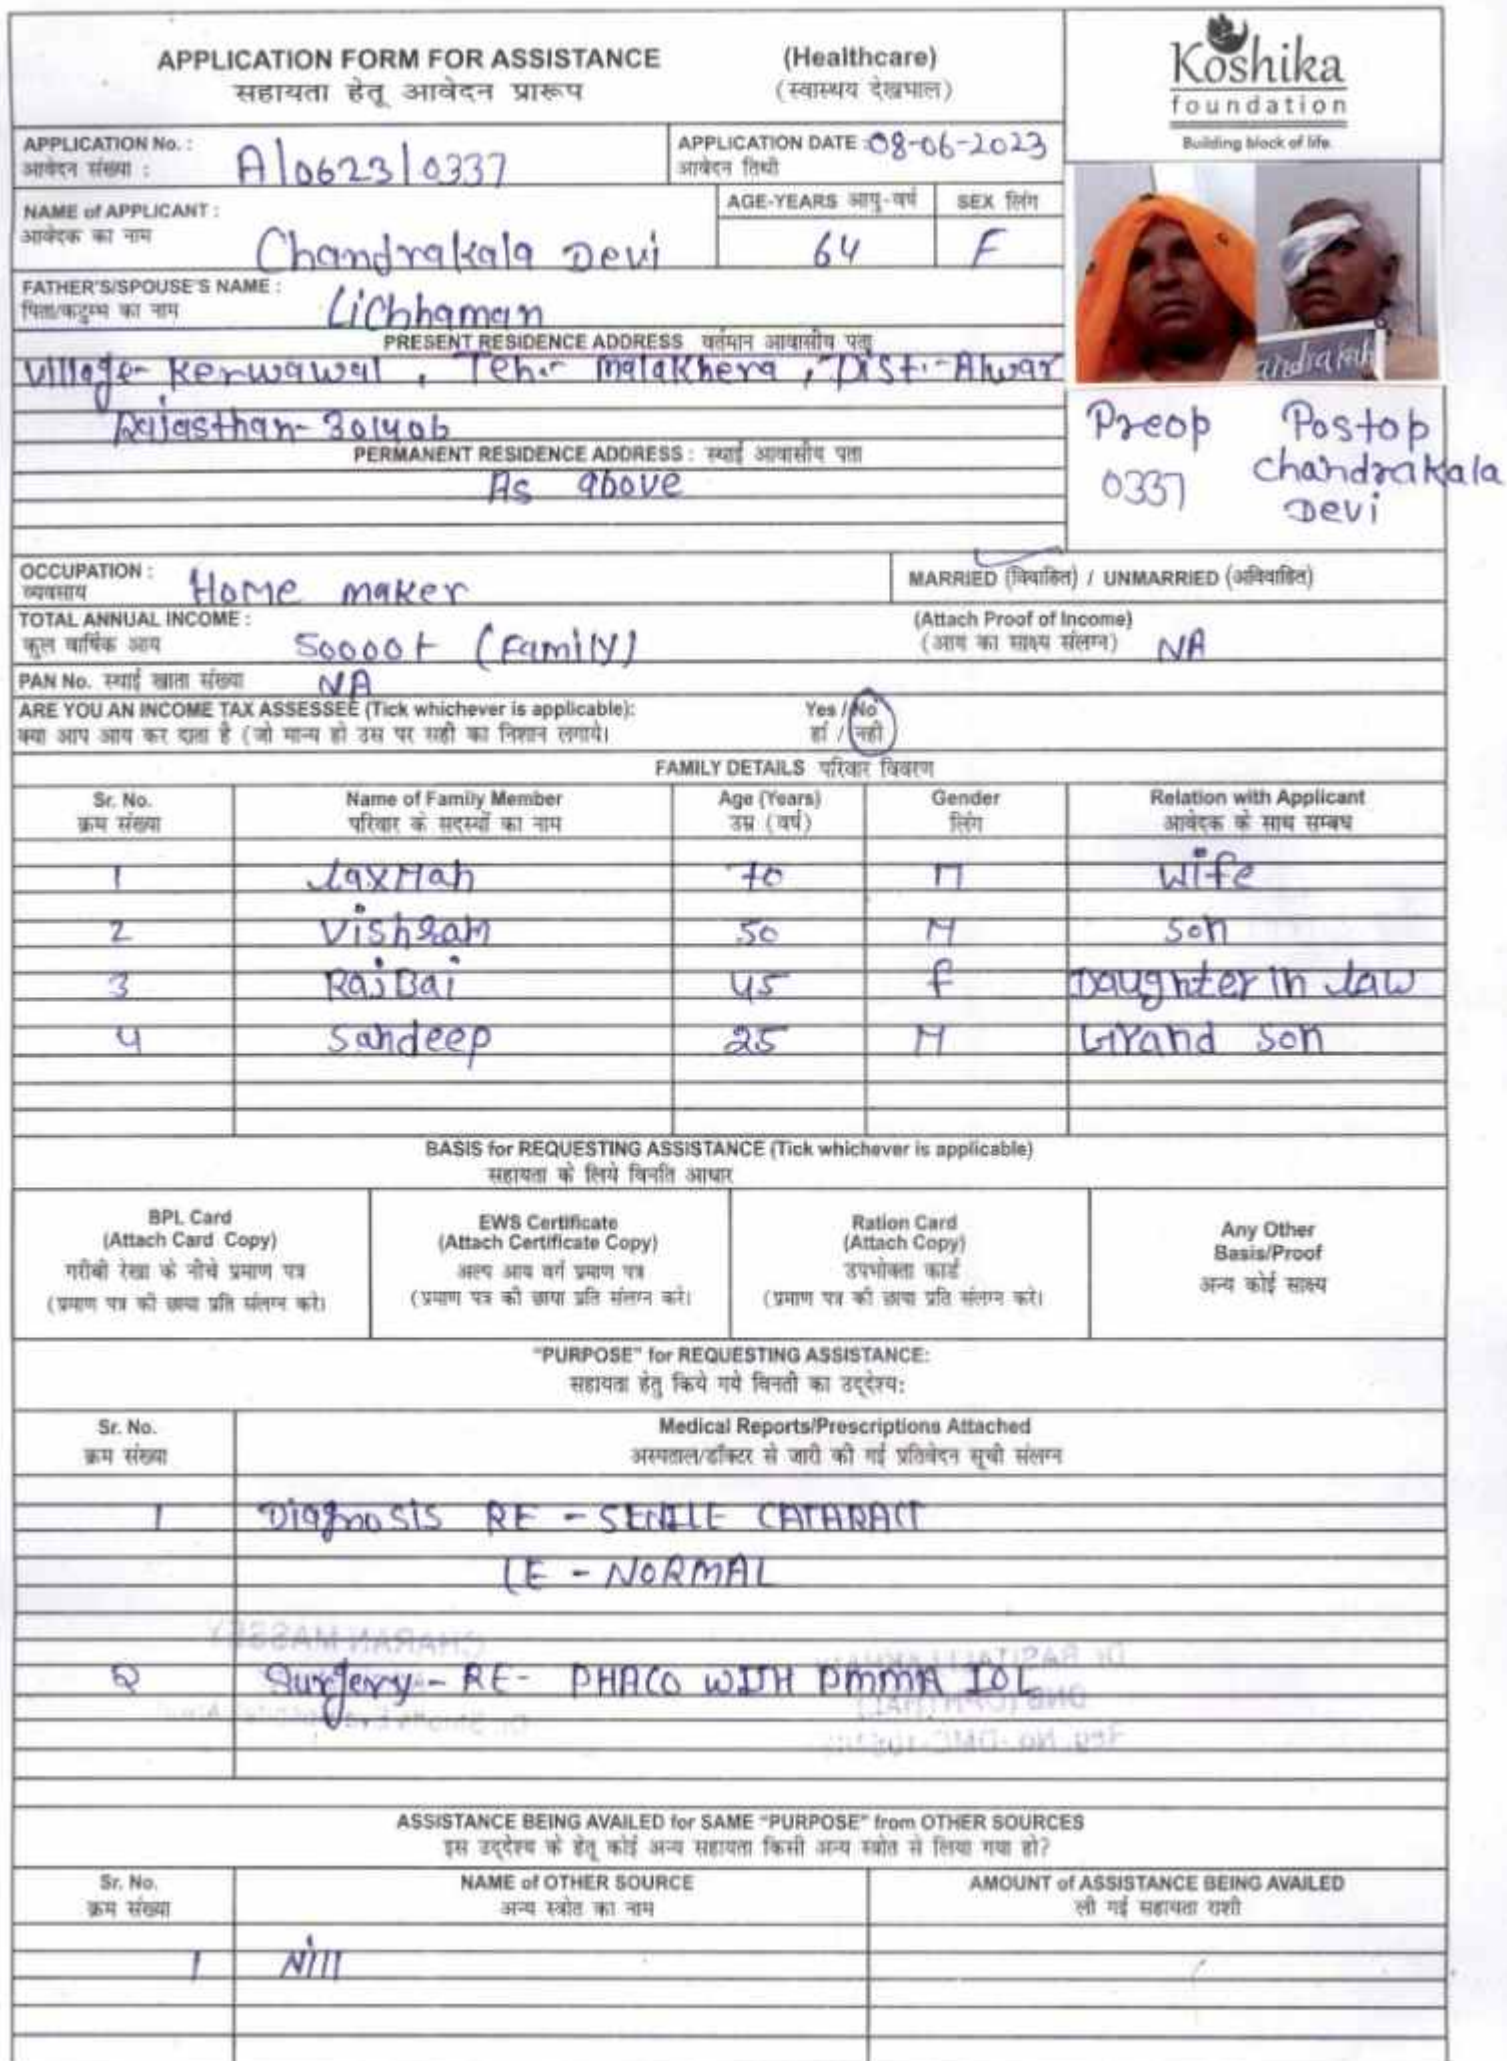 APPLICATION FORM FOR ASSISTANCE (Healthcare)
सहायता हेतू आवेदन प्रारूप (स्वास्थय देखभाल)
Koshika
foundation
Building block of life.
APPLICATION No. : A/0623/0337 APPLICATION DATE : 08-06-2023
आवेदन संख्या : आवेदन तिथी
NAME of APPLICANT : AGE-YEARS आयु-वर्ष SEX लिंग
आवेदक का नाम Chandrakala Devi 64 F
FATHER'S/SPOUSE'S NAME :
पिता/कटुम्ब का नाम Lichhaman
PRESENT RESIDENCE ADDRESS वर्तमान आवासीय पता
Village- Kerwawal , Teh.- Malakhera , Dist.- Alwar
Rajasthan- 301406
PERMANENT RESIDENCE ADDRESS : स्थाई आवासीय पता
As above
andrakah
Preop Postop
0337 Chandrakala
Devi
OCCUPATION : Home maker MARRIED (विवाहित) / UNMARRIED (अविवाहित)
व्यवसाय
TOTAL ANNUAL INCOME : (Attach Proof of Income)
कुल वार्षिक आय 50000+ (Family) (आय का साक्ष्य संलग्न) NA
PAN No. स्थाई खाता संख्या NA
ARE YOU AN INCOME TAX ASSESSEE (Tick whichever is applicable): Yes / No
क्या आप आय कर दाता है (जो मान्य हो उस पर सही का निशान लगाये। हां / नही
FAMILY DETAILS परिवार विवरण
Sr. No. Name of Family Member Age (Years) Gender Relation with Applicant
क्रम संख्या परिवार के सदस्यों का नाम उम्र (वर्ष) लिंग आवेदक के साथ सम्बध
1 Laxman 70 M Wife
2 Vishram 50 M Son
3 RajBai 45 F Daughter in law
4 Sandeep 25 M Grand son
BASIS for REQUESTING ASSISTANCE (Tick whichever is applicable)
सहायता के लिये विनति आधार
BPL Card
(Attach Card Copy)
गरीबी रेखा के नीचे प्रमाण पत्र
(प्रमाण पत्र की छाया प्रति संलग्न करे)
EWS Certificate
(Attach Certificate Copy)
अल्प आय वर्ग प्रमाण पत्र
(प्रमाण पत्र की छाया प्रति संलग्न करे।
Ration Card
(Attach Copy)
उपभोक्ता कार्ड
(प्रमाण पत्र की छाया प्रति संलग्न करे।
Any Other
Basis/Proof
अन्य कोई साक्ष्य
"PURPOSE" for REQUESTING ASSISTANCE:
सहायता हेतु किये गये विनती का उद्देश्य:
Sr. No. Medical Reports/Prescriptions Attached
क्रम संख्या अस्पताल/डॉक्टर से जारी की गई प्रतिवेदन सूची संलग्न
1 Diagnosis RE - SENILE CATARACT
LE - NORMAL
2 Surgery - RE- PHACO WITH PMMA IOL
ASSISTANCE BEING AVAILED for SAME "PURPOSE" from OTHER SOURCES
इस उद्देश्य के हेतू कोई अन्य सहायता किसी अन्य स्त्रोत से लिया गया हो?
Sr. No. NAME of OTHER SOURCE AMOUNT of ASSISTANCE BEING AVAILED
क्रम संख्या अन्य स्त्रोत का नाम ली गई सहायता राशी
1 Nill